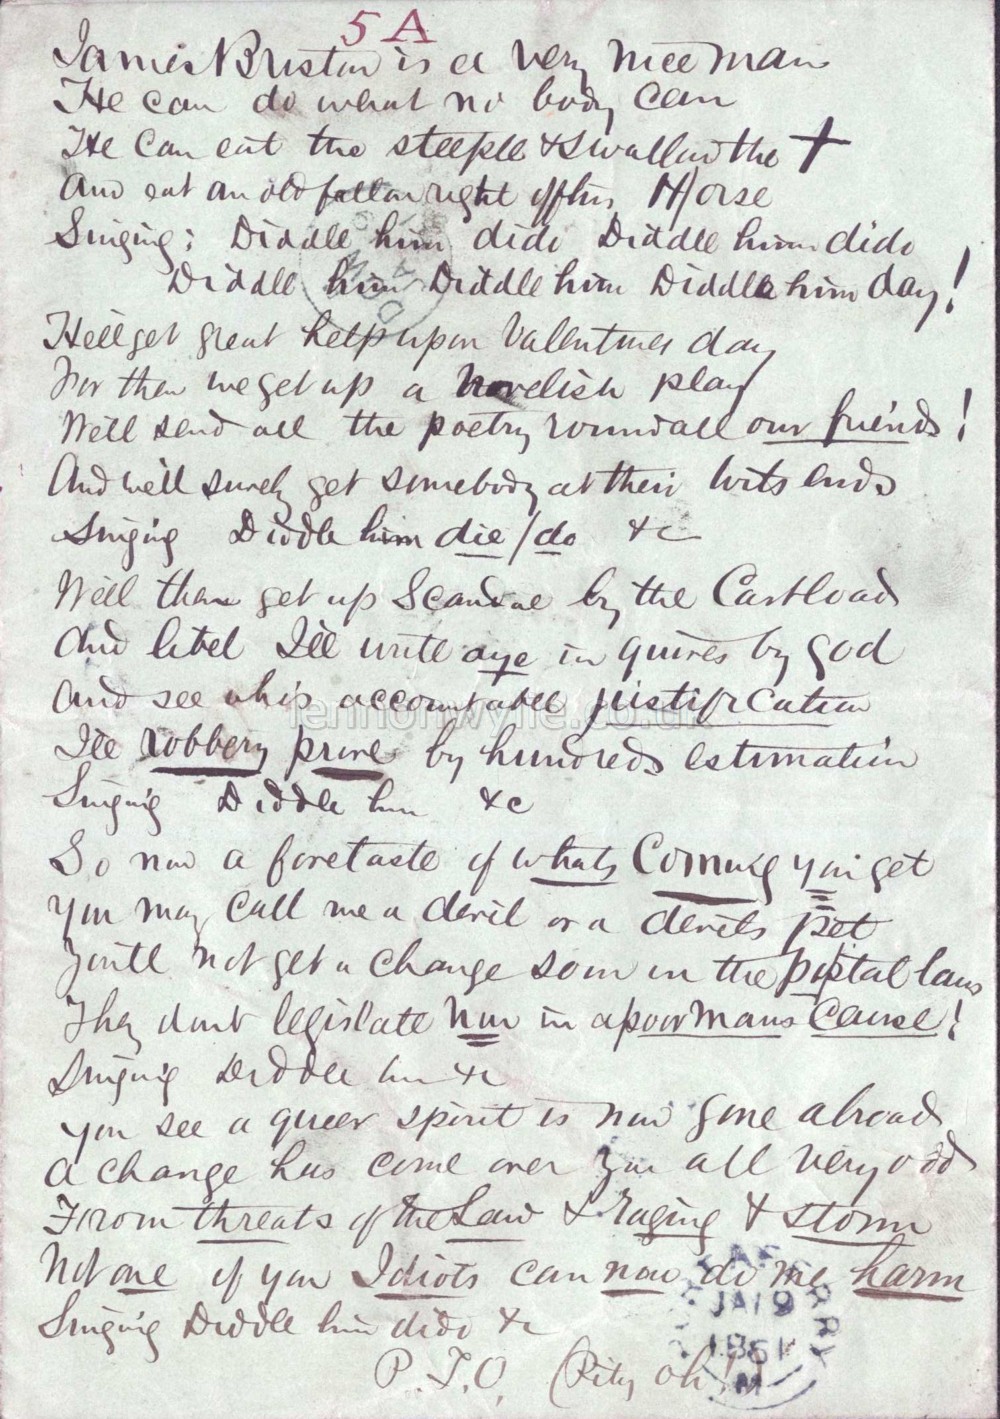 5 A
James Buston is a very nice man
He can do what no body can
He can eat the steeple & swallow the +
And eat an old fellow right off his Horse
Singing: Diddle him dido Diddle him dido
Diddle him Diddle him Diddle him day!
He'll get great help upon Valentines day
For then we get up a novelish play
We'll send all the poetry round all our friends!
And we'll surely get somebody at their wits ends
Singing Diddle him die/do &c
We'll then get up Scandal by the Cartload
And libel I'll write aye in quires by god
And see who's accountable justification
I'le robbery prove by hundreds estimation
Singing Diddle him &c
So now a foretaste of whats Coming you get
You may call me a devil or a devils pet
You'll not get a change soon in the postal laws
They dont legislate now in a poor mans Cause!
Singing Diddle him &c
You see a queer spirit is now gone abroad
A change has come over you all very odd
From threats of the Law & Raging & storm
Not one of you Idiots can now do me harm
Singing Diddle him dido &c
P.T.O. (Pity oh!)
JA 19
1861
lennonwylie.co.uk